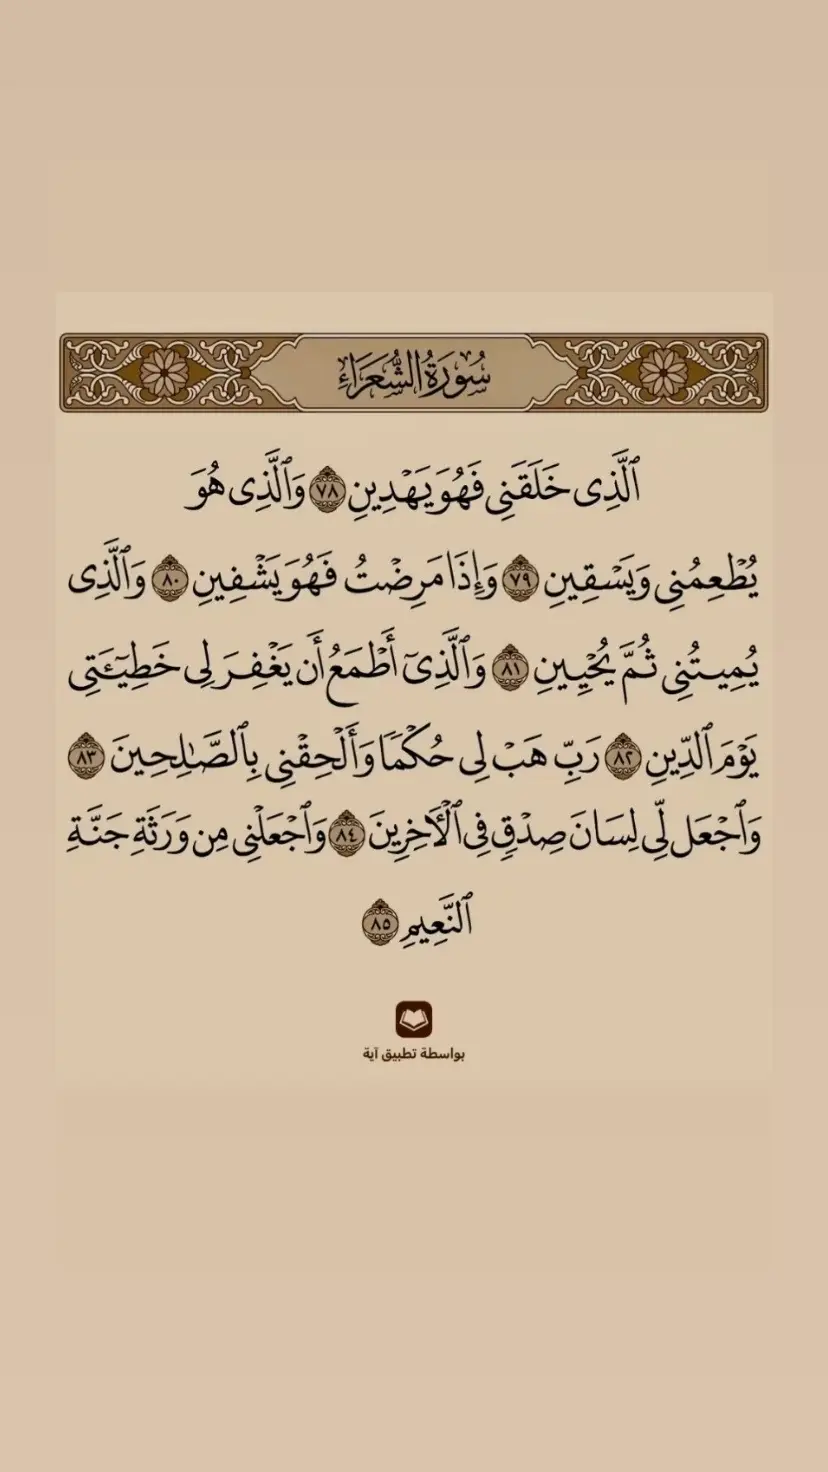 سُورَةُ الشُّعَرَاءِ
ٱلَّذِى خَلَقَنِى فَهُوَ يَهْدِينِ ٧٨ وَٱلَّذِى هُوَ
يُطْعِمُنِى وَيَسْقِينِ ٧٩ وَإِذَا مَرِضْتُ فَهُوَ يَشْفِينِ ٨٠ وَٱلَّذِى
يُمِيتُنِى ثُمَّ يُحْيِينِ ٨١ وَٱلَّذِىٓ أَطْمَعُ أَن يَغْفِرَ لِى خَطِيٓـَٔتِى
يَوْمَ ٱلدِّينِ ٨٢ رَبِّ هَبْ لِى حُكْمًا وَأَلْحِقْنِى بِٱلصَّـٰلِحِينَ ٨٣
وَٱجْعَل لِّى لِسَانَ صِدْقٍ فِى ٱلْـَٔاخِرِينَ ٨٤ وَٱجْعَلْنِى مِن وَرَثَةِ جَنَّةِ
ٱلنَّعِيمِ ٨٥
بواسطة تطبيق آية